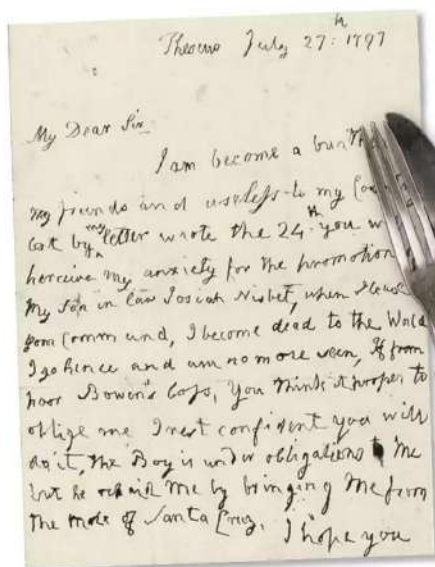 Theseus July 27:th 1797
My Dear Sir
I am become a burthen
my friends and useless to my Coun
but by my letter wrote the 24.th you w
perceive my anxiety for the promotion
my Son in law Josiah Nisbet, when I leave
your Command, I become dead to the World
I go hence and am no more seen, If from
poor Bowen's Loss, You think it proper to
oblige me I rest confident you will
do it, the Boy is under obligations to Me
but he repaid Me by bringing Me from
the Mole of Santa Cruz.
I hope you